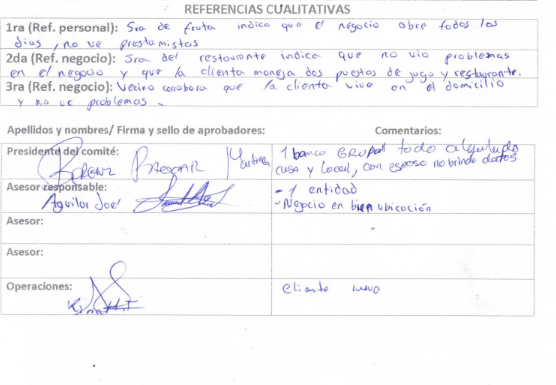 REFERENCIAS CUALITATIVAS
1ra (Ref. personal): Sra de fruta indica que el negocio abre todos los
dias, no ve prestamistas
2da (Ref. negocio): Sra del restaurante indica que no vio problemas
en el negocio y que la clienta maneja dos puestos de jugo y restaurante.
3ra (Ref. negocio): Vecino corrobora que la clienta vive en el domicilio
y no ve problemas.
Apellidos y nombres/ Firma y sello de aprobadores: Comentarios:
Presidente del comité: 1 banco GRUPAL todo alquilado
casa y local, con esposo no brindo datos
Asesor responsable: - 1 entidad
Aguilar Joel - Negocio en bien ubicación
Asesor:
Asesor:
Operaciones: cliente nuevo